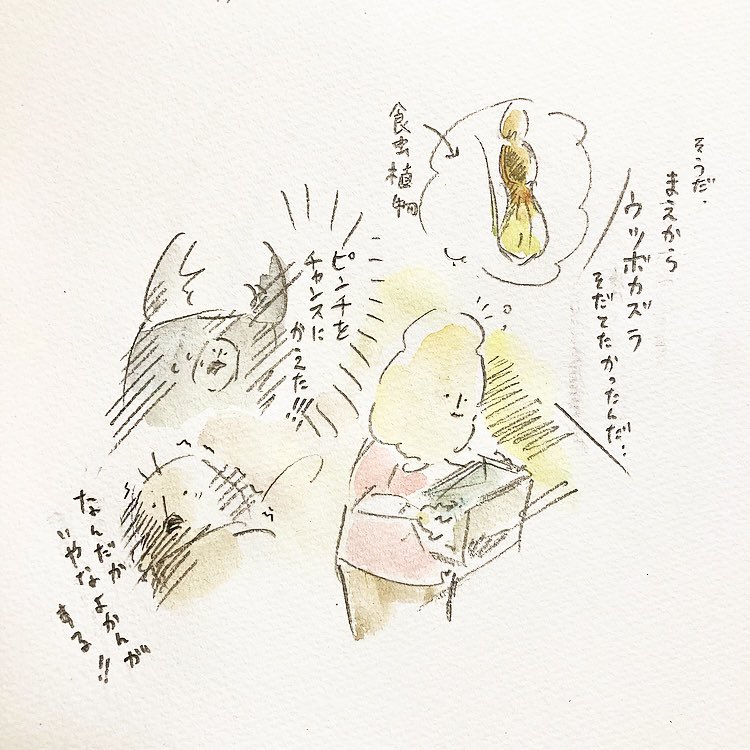 そうだ、
まえから
ウツボカズラ
そだてたかったんだ…
食虫植物
ピンチを
チャンスに
かえた!!!
なんだか
いやなよかんが
する!!